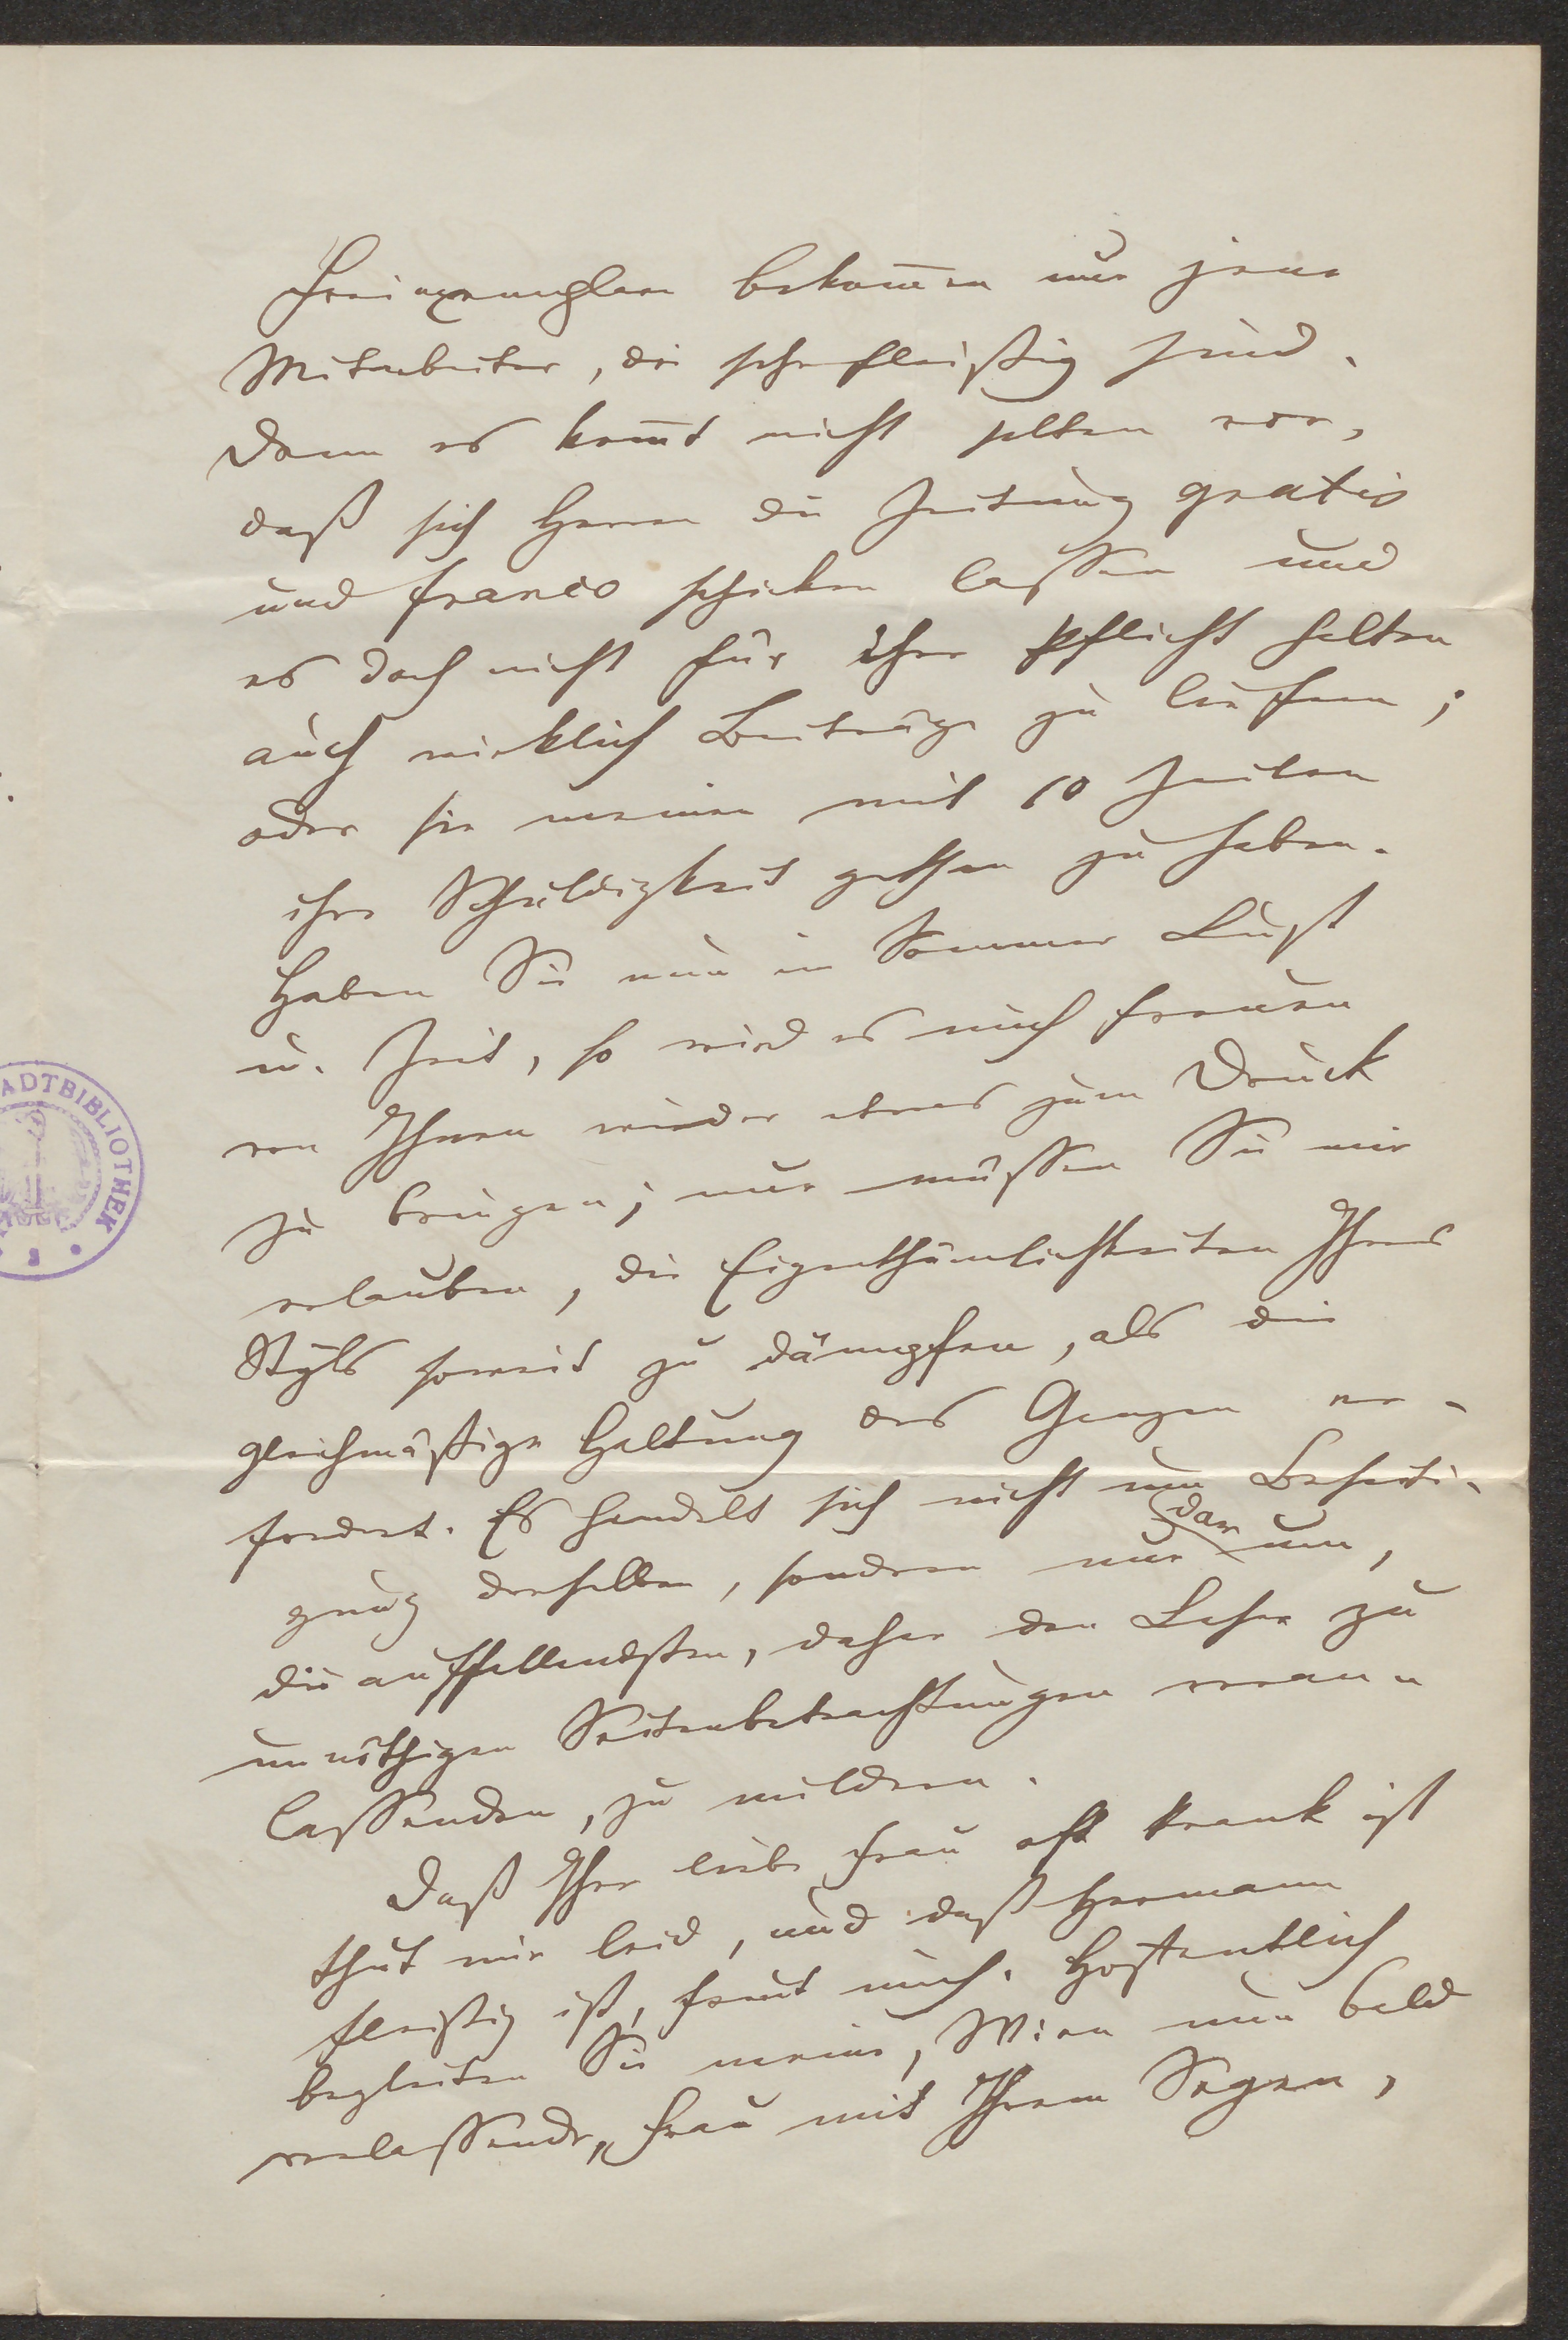 Freiexemplare bekom̄en nur jene
Mitarbeiter, die sehr fleißig sind.
Denn es kom̄t nicht selten vor,
daß sich Herren die Zeitung gratis
und franco schicken lassen und
es doch nicht für ihre Pflicht halten
auch wirklich Beiträge zu liefern;
oder sie meinen mit 10 Zeilen
ihre Schuldigkeit gethan zu haben.
Haben Sie nun im Sommer Lust
u. Zeit, so wird es mich freuen
von Ihnen wieder etwas zum Druck
zu bringen; nur müssen Sie mir
erlauben, die Eigenthümlichkeiten Ihres
Styls soweit zu dämpfen, als die
gleichmäßige Haltung des Ganzen er-
fordert. Es handelt sich nicht um Beseiti-
gung derselben, sondern nur darum,
die auffallendsten, daher den Leser zu
unnöthigen Seitenbetrachtungen veran-
lassenden, zu mildern.
Daß Ihre liebe Frau oft krank ist
thut mir leid, und daß Hermann
fleißig ist, freut mich. Hoffentlich
begleiten Sie meine, Wien nun bald
verlassende, Frau mit Ihrem Segen,
ADTBIBLIOTHEK